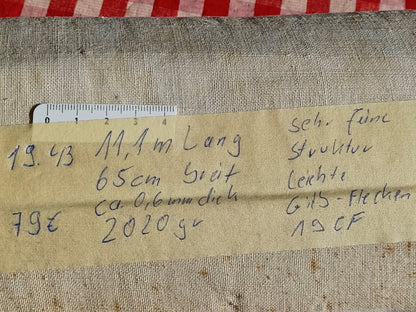 0 1 2 3 4
19.43 11,1m Lang
65cm breit
79€ ca. 0,6mm dick
2020gr
sehr feine
Struktur
Leichte
Gilb-Flecken
19CF